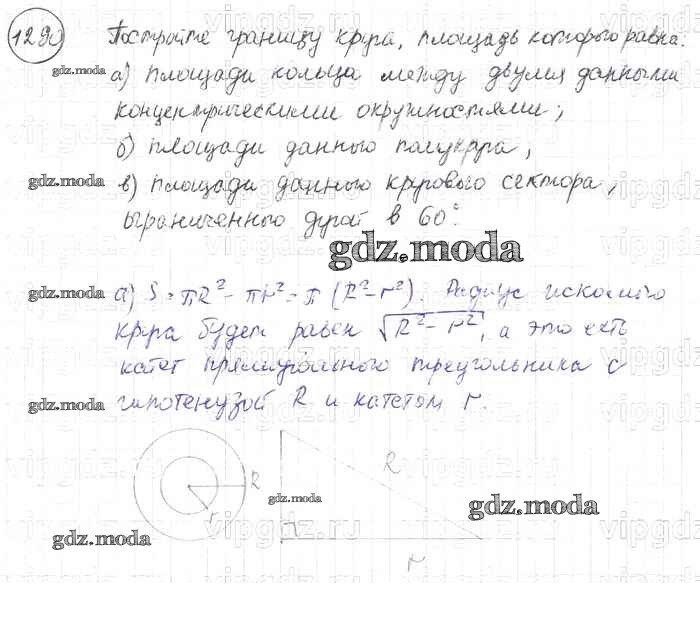 1290 Постройте границу круга, площадь которого равна:
а) площади кольца между двумя данными
gdz.moda
концентрическими окружностями;
б) площади данного полукруга,
gdz.moda в) площади данного кругового сектора,
ыграниченного дугой в 60°.
gdz.moda
gdz.moda а) S = πR² - πr² = π (R² - r²). Радиус искомого
круга будет равен √R² - r², а это есть
катет прямоугольного треугольника с
gdz.moda гипотенузой R и катетом r.
R
R
gdz.moda
gdz.moda
r
gdz.moda
r
vipgdz.ru